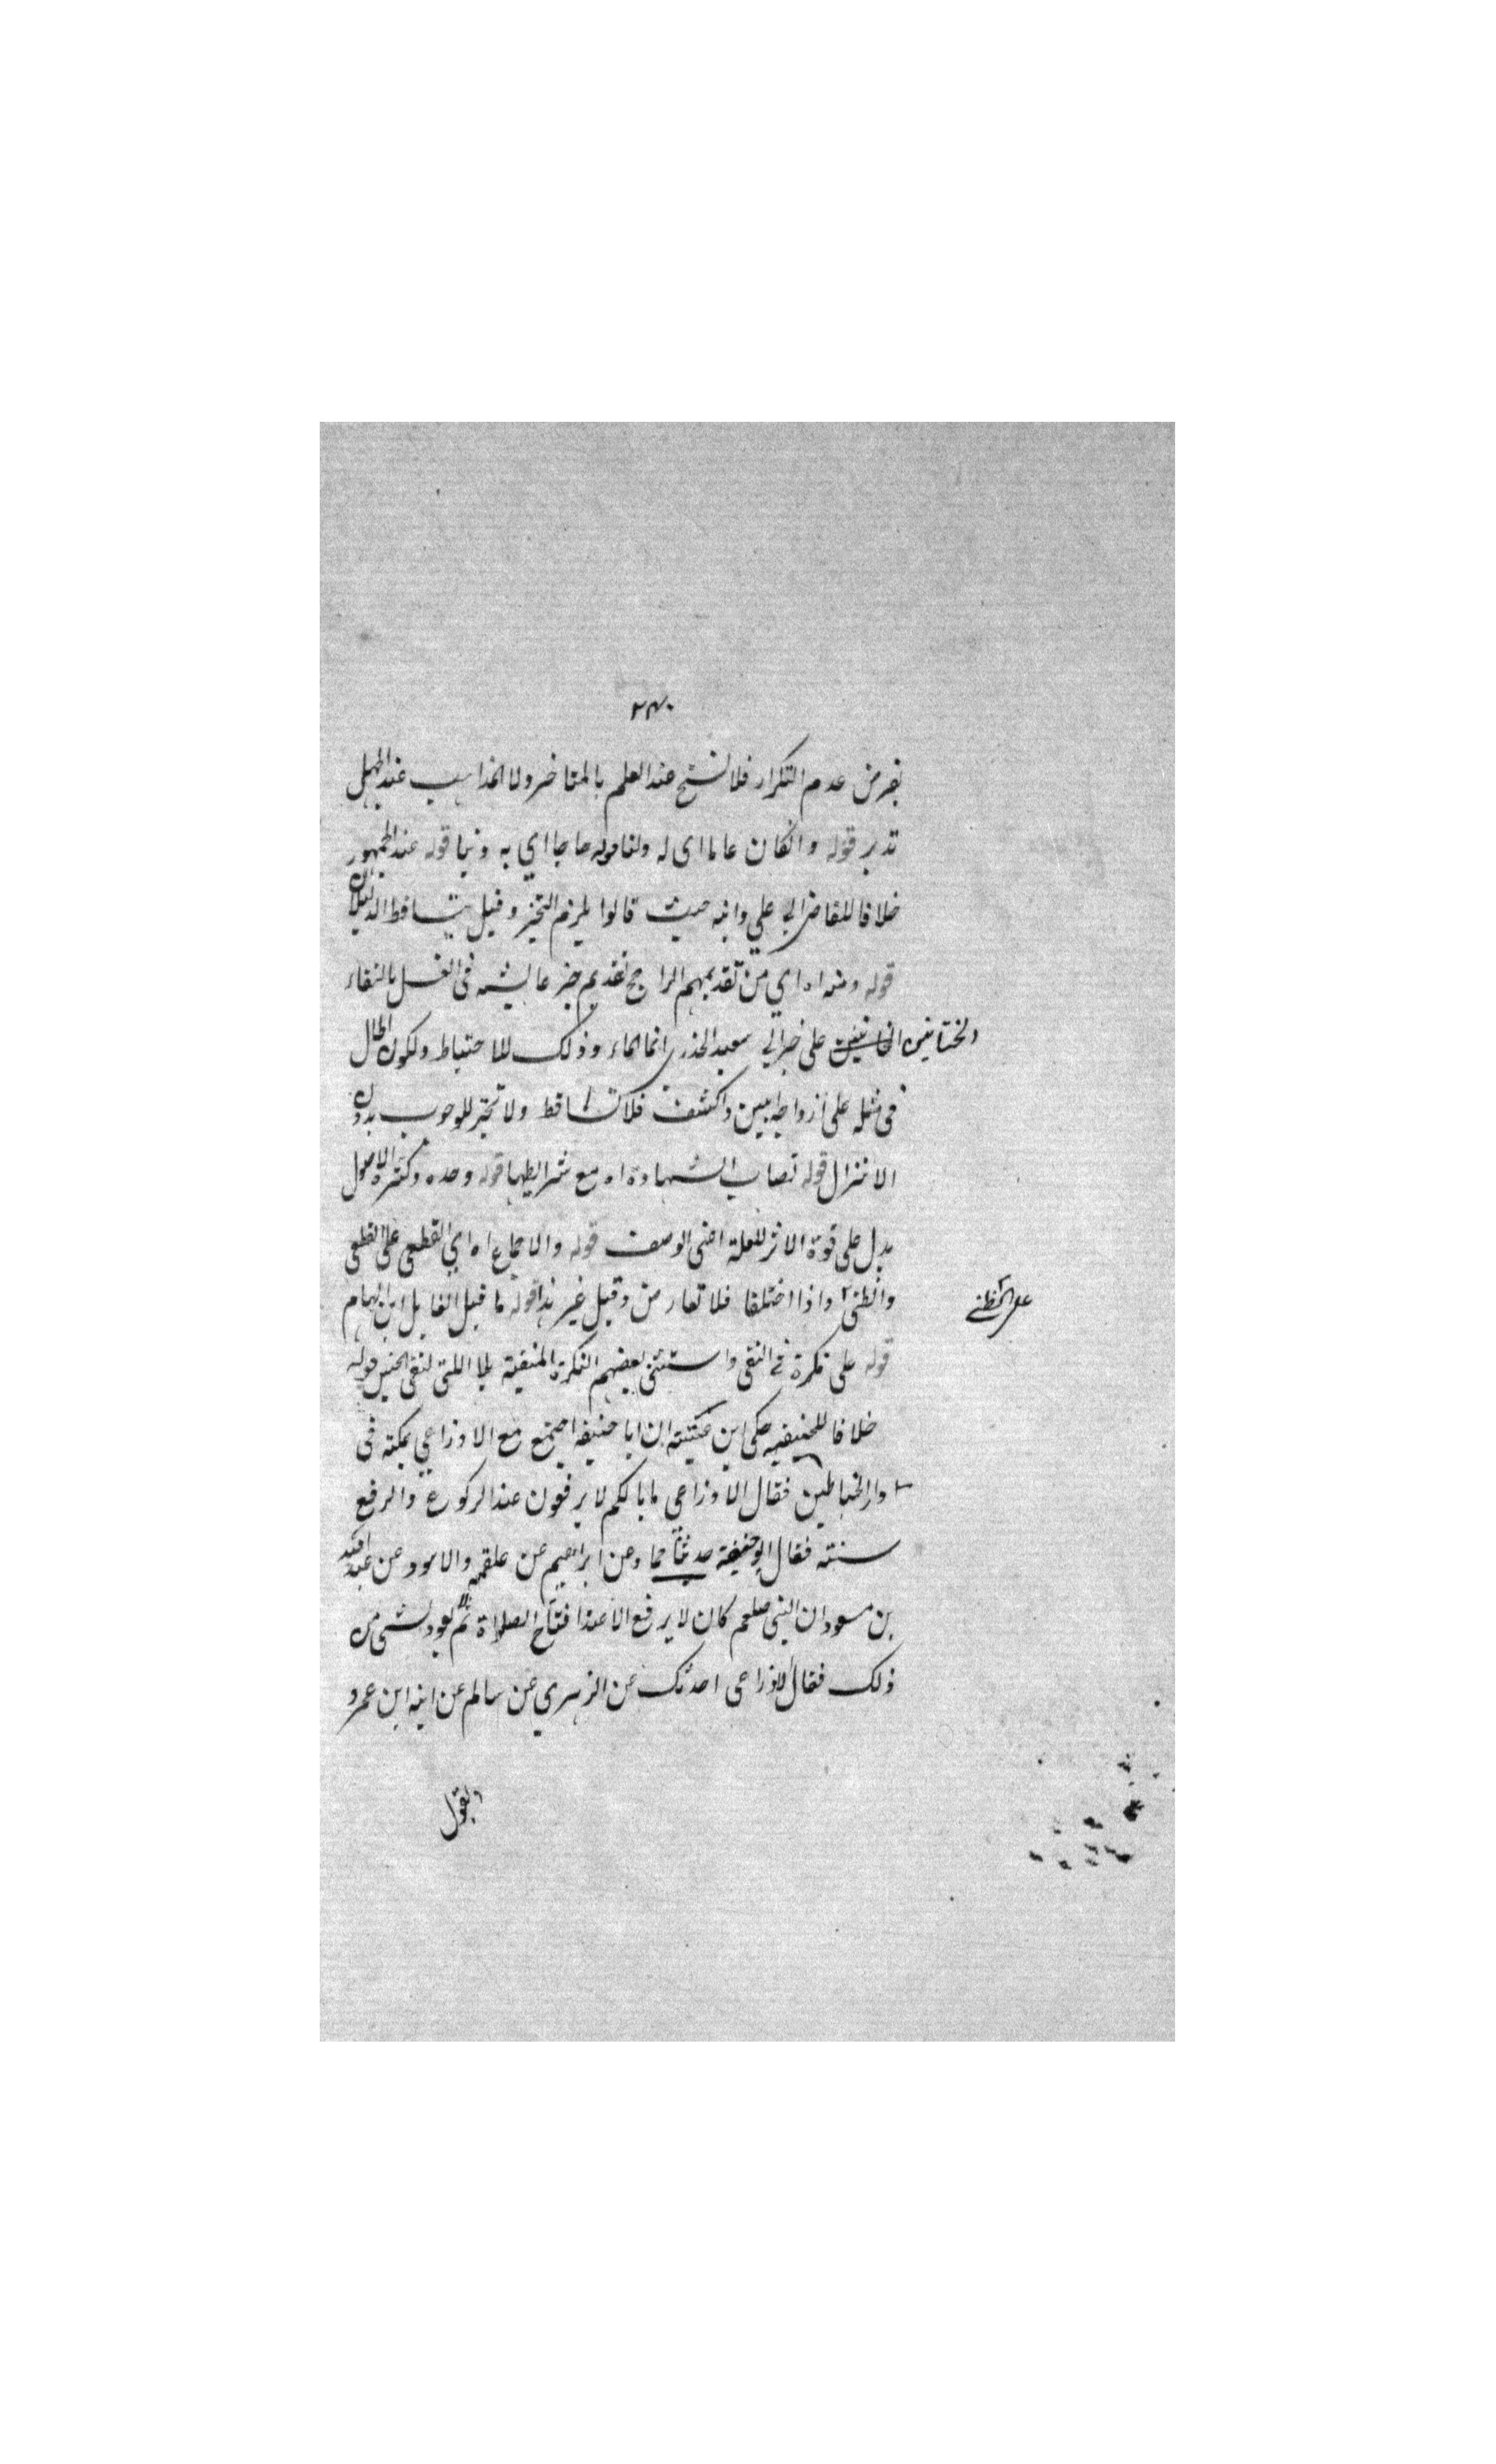 ٢٣٠
بفرض عدم التكرار فلا نسخ عند العلم بالمتاخر ولا عند الجهل
تدبر قوله وانكان عاما اى له ولنا قوله خاصا اي به وبنا قوله عند الجمهور
خلافا للقاضي ابي علي وابنه حيث قالوا يلزم التخيير وقيل يتساقط الدليلان
قوله ومنه اه اي من تقديمهم الراجح تقديم خبر عايشه فى الغسل بالتقاء
الختانين على خبر ابي سعيد الخدرى انما الماء وذلك للاحتياط ولكون الحال
فى مثله على ازواجه ابين واكشف فلا تساقط ولا تخير للوجوب بدون
الانزال قوله نصاب الشهادة اه مع شرايطها قوله وحده وكثرة الاصول
يدل على قوة الاثر للعلة اعنى الوصف قوله والاجماع اه اي القطعى على القطعى
والظنى واذا اختلفا فلا تعارض وقيل غير هذا قوله ما قيل القايل ابن الهمام
على الظنى
قوله على نكرة فى النفى واستثنى بعضهم النكرة المنفية بلا اللتى لنفى الجنس قوله
خلافا للحنيفيه حكى ابن عيينته ان ابا حنيفه اجتمع مع الاوزاعي بمكة فى
دار الخياطين فقال الاوزاعى ما بالكم لا يرفعون عند الركوع والرفع
سنته فقال ابو حنيفة حدثنا حماد عن ابراهيم عن علقمه والاسود عن عبد الله
بن مسعود ان النبى صلعم كان لا يرفع الا عند افتتاح الصلاة ثم لا يعود لشى من
ذلك فقال الاوزاعى احدثك عن الزهري عن سالم عن ابيه ابن عمر و
وتقول